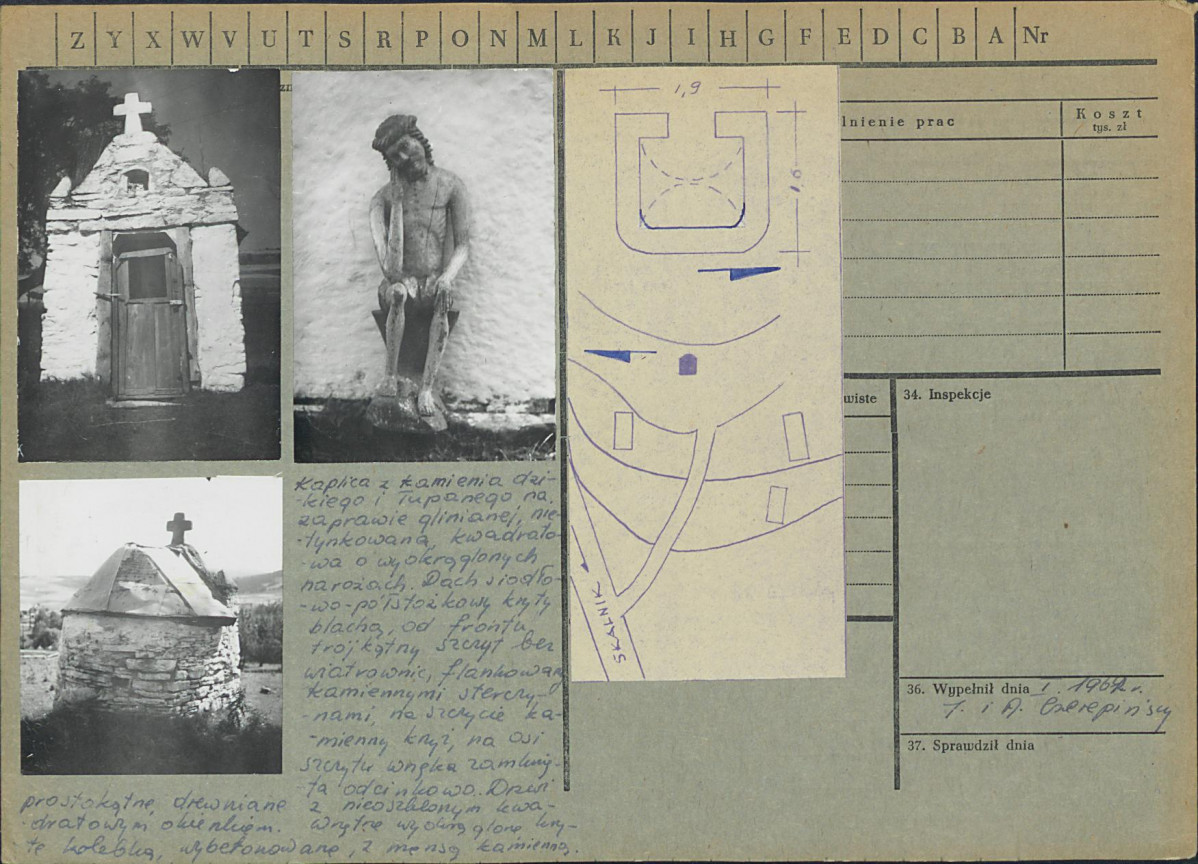 Z Y X W V U T S R P O N M L K J I H G F E D C B A Nr
lnienie prac
Koszt
tys. zł
1,9
1,6
wiste
34. Inspekcje
SKALNIK
Kaplica z kamienia dzi-
-kiego i łupanego na
zaprawie glinianej, nie-
-tynkowana, kwadrato-
-wa o wyokrąglonych
narożach. Dach siodło-
-wo-półstożkowy kryty
blachą, od frontu
trójkątny szczyt bez
wiatrownic, flankowany
kamiennymi sterczy-
-nami, na szczycie ka-
-mienny krzyż, na osi
szczytu wnęka zamknię-
ta odcinkowo. Drzwi
prostokątne drewniane
z nieoszklonym kwa-
-dratowym okienkiem.
Wnętrze wyokrąglone kry-
te kolebką, wybetonowane, z mensą kamienną.
36. Wypełnił dnia I. 1962 r.
J. i A. Czerepińscy
37. Sprawdził dnia